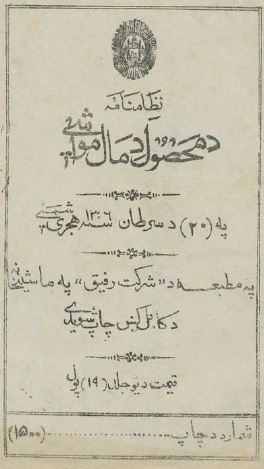 نظامنامه
د محصول د مال مواشی
په (۲۰) د سرطان سنه ۱۳۰۶ هجری شمسی
په مطبعه د "شرکت رفیق" په ماشینخانه
د کابل کښی چاپ شویدی
قیمت د یو جلد (۱۹) پولی
شمار د چاپ .................. (۱۵۰۰)